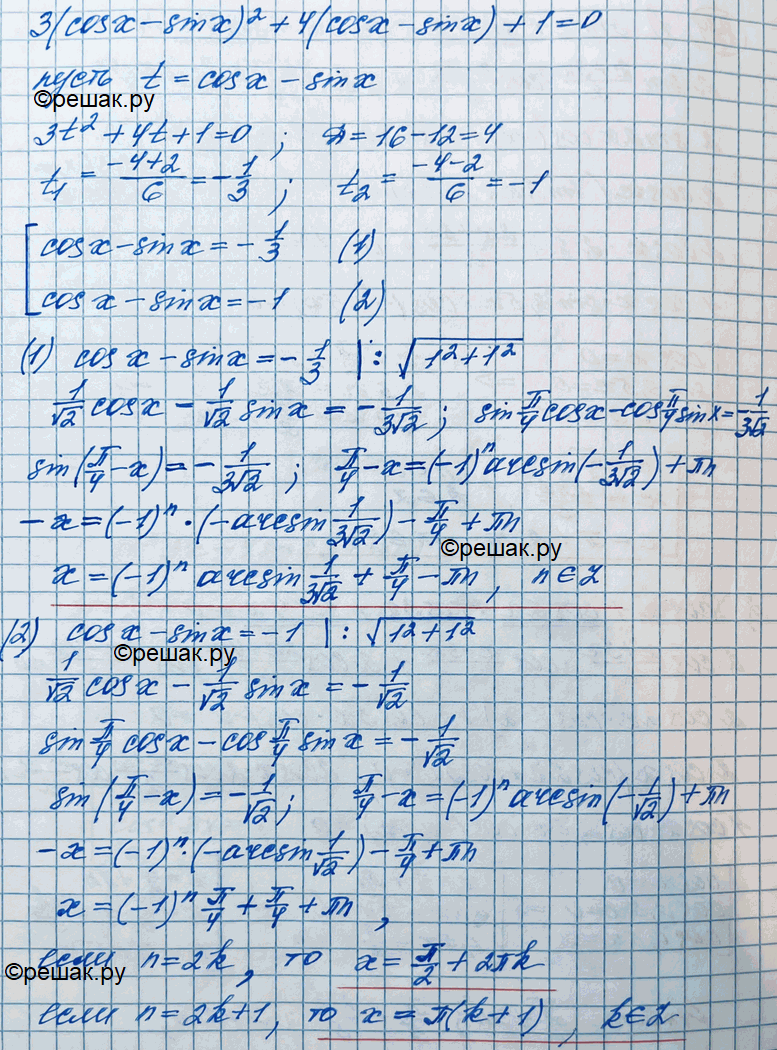 3(cosx − sinx)² + 4(cosx − sinx) + 1 = 0
пусть t = cosx − sinx
©решак.ру
3t² + 4t + 1 = 0 ; Д = 16 − 12 = 4
t₁ = (−4+2)/6 = −1/3 ; t₂ = (−4−2)/6 = −1
[ cosx − sinx = −1/3 (1)
cosx − sinx = −1 (2)
(1) cosx − sinx = −1/3 | : √(1²+1²)
1/√2 cosx − 1/√2 sinx = −1/(3√2) ; sin π/4 cosx − cos π/4 sinx = −1/(3√2)
sin(π/4 − x) = −1/(3√2) ; π/4 − x = (−1)ⁿ arcsin(−1/(3√2)) + πn
−x = (−1)ⁿ · (−arcsin 1/(3√2)) − π/4 + πn
©решак.ру
x = (−1)ⁿ arcsin 1/(3√2) + π/4 − πn, n ∈ Z
(2) cosx − sinx = −1 | : √(1²+1²)
©решак.ру
1/√2 cosx − 1/√2 sinx = −1/√2
sin π/4 cosx − cos π/4 sinx = −1/√2
sin(π/4 − x) = −1/√2 ; π/4 − x = (−1)ⁿ arcsin(−1/√2) + πn
−x = (−1)ⁿ · (−arcsin 1/√2) − π/4 + πn
x = (−1)ⁿ π/4 + π/4 + πn,
если n = 2k, то x = π/2 + 2πk
©решак.ру
если n = 2k+1, то x = π(k+1), k ∈ Z